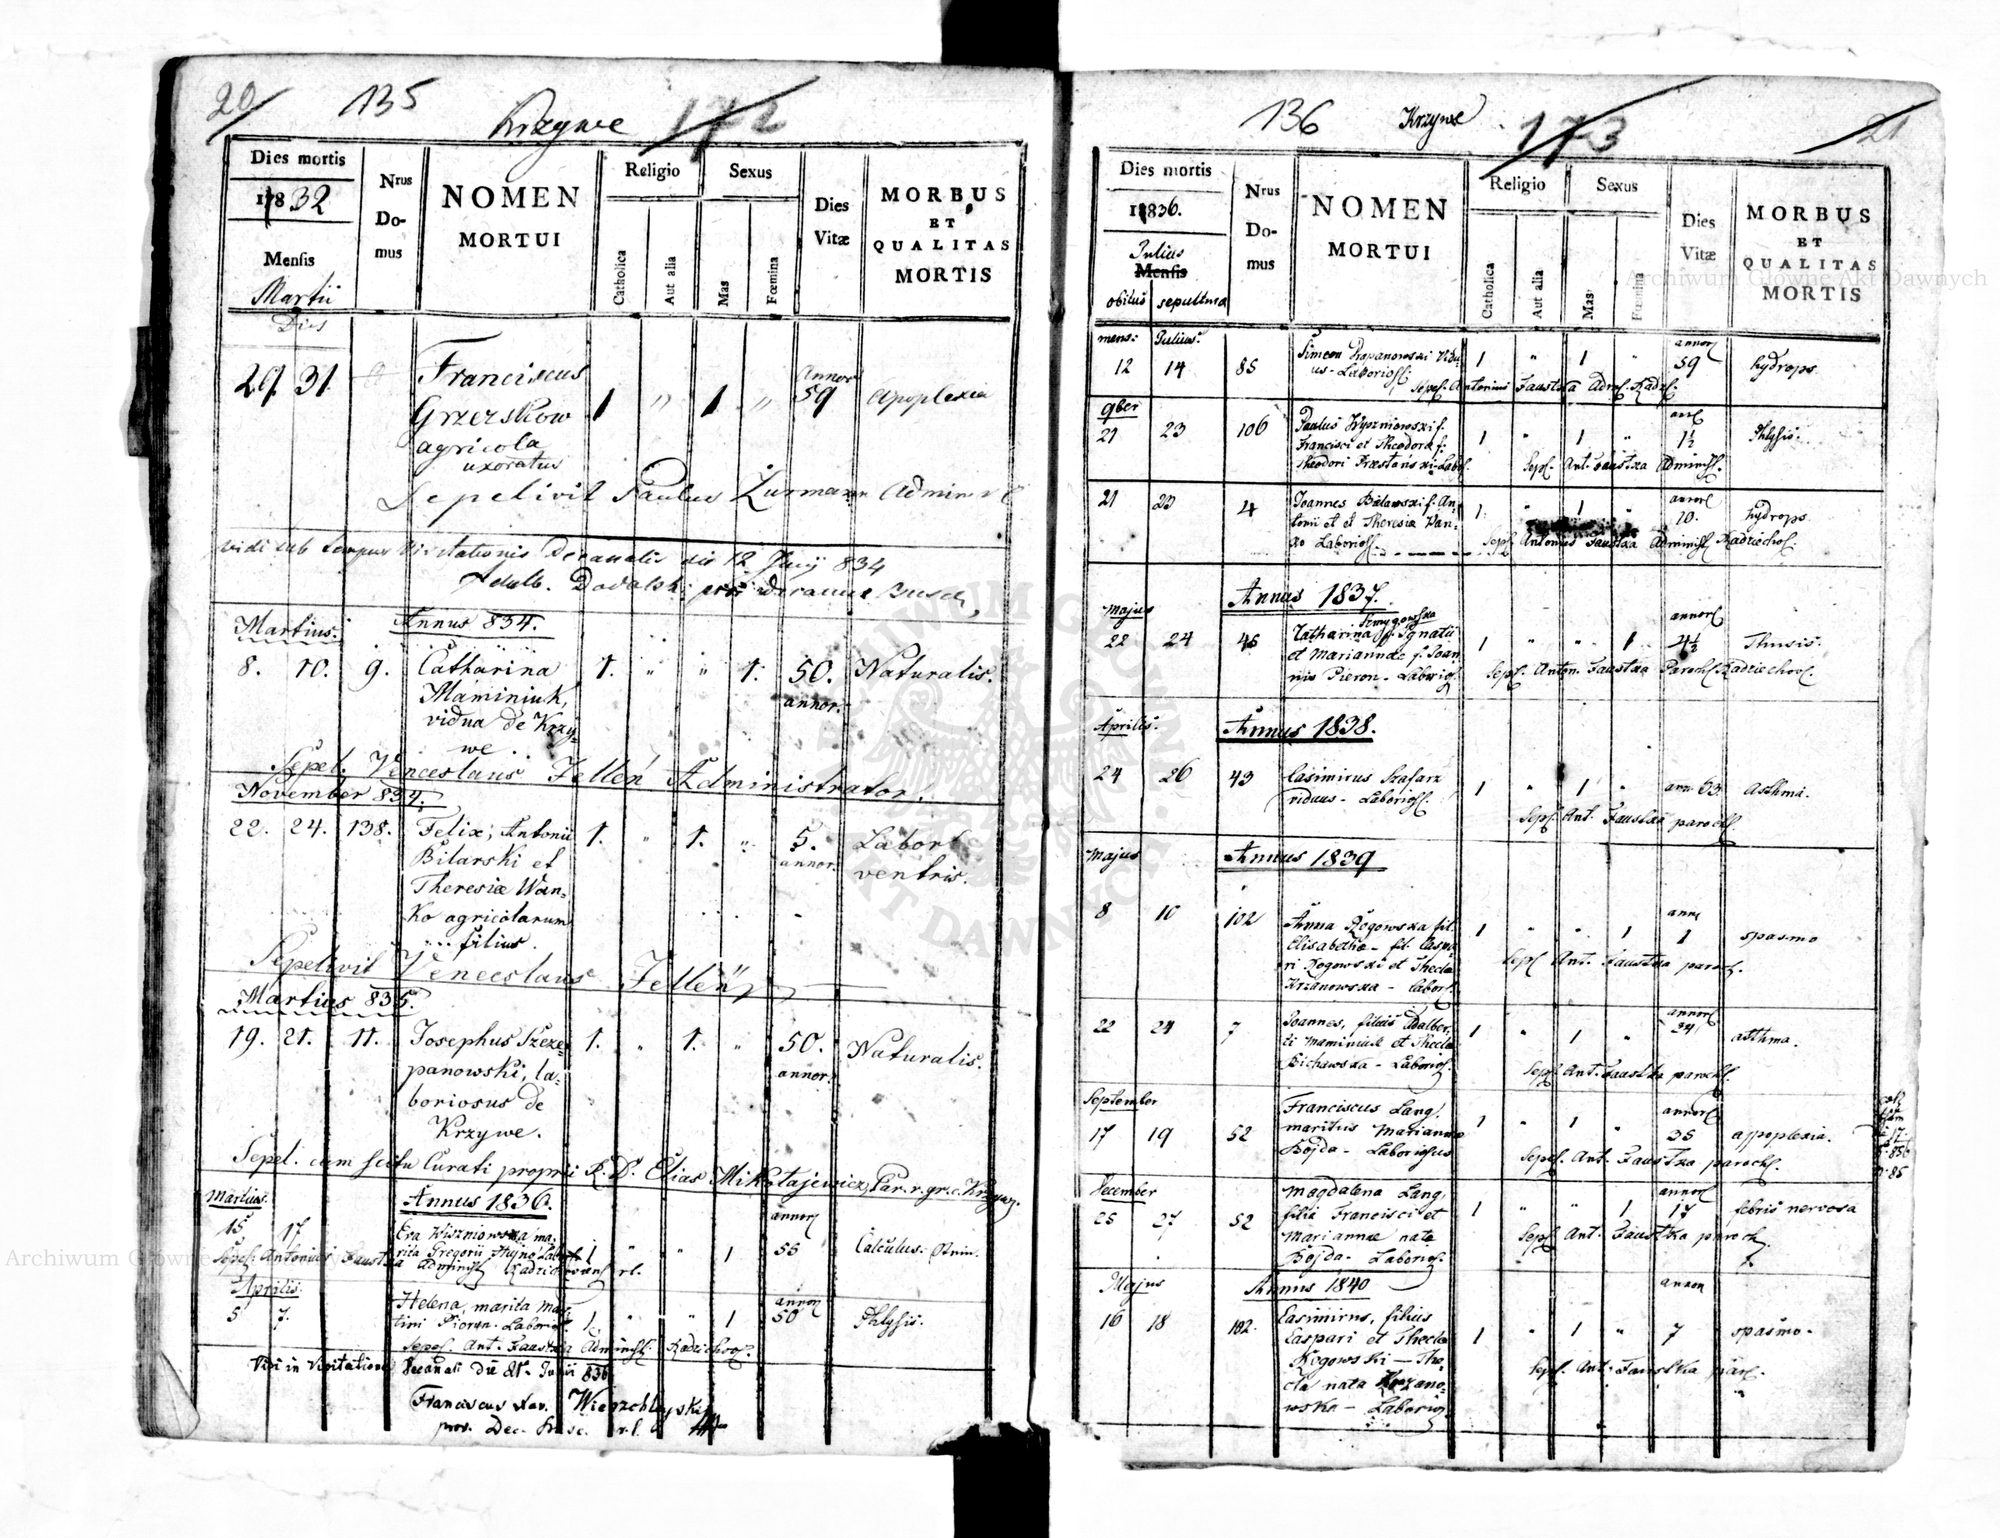 20 135 Krzywe 172
Dies mortis
1832
Mensis
Martii
Dies
Nrus
Do-
mus
NOMEN
MORTUI
Religio
Catholica
Aut alia
Sexus
Mas
Fœmina
Dies
Vitæ
MORBUS
ET
QUALITAS
MORTIS
29. 31 Franciscus 1 " 1 " Annor 59 Apoplexia
Grzerskow
agricola
uxoratus
Sepelivit Paulus Zurmann Admin
Vidi sub tempus Visitationis Decanalis die 12 Junij 834
Adalb. Dodalski
Martius. Annus 834.
8. 10. 9. Catharina 1. " " 1. 50. Naturalis.
Maminiuk, annor.
vidua de Krzy-
we.
Sepel. Venceslaus Jelleń Administrator.
November 834.
22. 24. 138. Felix, Antonii 1. " 1. " 5. Labor
Bilarski et annor. ventris.
Theresiæ Wan-
ko agricolarum
filius.
Sepelivit Venceslaus Jelleń
Martius 835.
19. 21. 11. Josephus Szcze- 1. " 1. " 50. Naturalis.
panowski, la- annor.
boriosus de
Krzywe.
Sepel. cum scitu Curati proprii R. D. Elias Mikołajewicz Par. r. gr. c. Krzywe.
Martius. Annus 1836.
15 17 Eva Wiszniowska ma- 1 " " 1 annor 55 Calculus.
rita Gregorii
Sepel. Antonius Faustka Administ Radziechovens r.l.
Aprilis.
5 7. Helena, marita Mar- 1 " " 1 annor 50 Phtysis.
tini Pieron. Laborios.
Sepel. Ant. Faustka Administ. Radziechov.
Vidi in Visitatione Decanali die 21. Junii 836
Franciscus Xav. Wierzchleyski
prov. Dec. Busc. r.l.
136 Krzywe 173 21
Dies mortis
1836.
Julius
Mensis
obitus sepultura
Nrus
Do-
mus
NOMEN
MORTUI
Religio
Catholica
Aut alia
Sexus
Mas
Fœmina
Dies
Vitæ
MORBUS
ET
QUALITAS
MORTIS
mens: Julius.
12 14 85 Simeon Dropanowski Vidu- 1 " 1 " annor 59 hydrops
us - Laborios.
Sepel. Antonius Faustka Adm. Radz.
9ber
21 23 106 Paulus Wyszniowski f. 1 " 1 " ann 1½ Phtysis.
Francisci et Theodora f.
Theodori Labor.
Sepel. Ant. Faustka Administ.
21 23 4 Joannes Bilawski f. An- 1 " 1 " annor 10. hydrops
tonii et et Theresia Wan-
ko Laborios.
Sepel. Antonius Faustka Administ Radziechov.
Majus Annus 1837.
22 24 45 Catharina f. Ignatii 1 " " 1 annor 4½ Thussis.
et Mariannae f. Joan-
nis Pieron - Laborios.
Sepel. Anton. Faustka Paroch. Radziechov.
Aprilis. Annus 1838.
24 26 43 Casimirus Szafarz 1 " 1 " ann. 63 Asthma.
viduus - Laborios.
Sepel. Ant. Faustka paroch.
Majus Annus 1839
8 10 102 Anna Rogowska fil. 1 " " 1 ann 1 spasmo
Elisabethæ - fil. Caspa-
ri Rogowski et Thecla
Krzanowska - Labor.
Sepel. Ant. Faustka paroch.
22 24 7 Joannes, filius Adalber- 1 " 1 " annor 34 asthma.
ti Maminiuk et Thecla
Bichawska - Laborios.
Sepel. Ant. Faustka paroch.
September
17 19 52 Franciscus Lang, 1 " 1 " annor 35 appoplexia.
maritus Marianna
Bojda - Laboriosus
Sepel. Ant. Faustka paroch.
December
25 27 52 Magdalena Lang, 1 " " 1 annor 17 febris nervosa
filia Francisci et
Mariannae nata
Bojda - Laborios.
Sepel. Ant. Faustka paroch.
Majus Annus 1840
16 18 102. Casimirus, filius 1 " 1 " annor 7 spasmo.
Caspari et Thecla
Rogowski - The-
cla nata Krzano-
wska - Laborios.
Sepel. Ant. Faustka par.
Archiwum Główne Akt Dawnych
ARCHIWUM GŁÓWNE AKT DAWNYCH